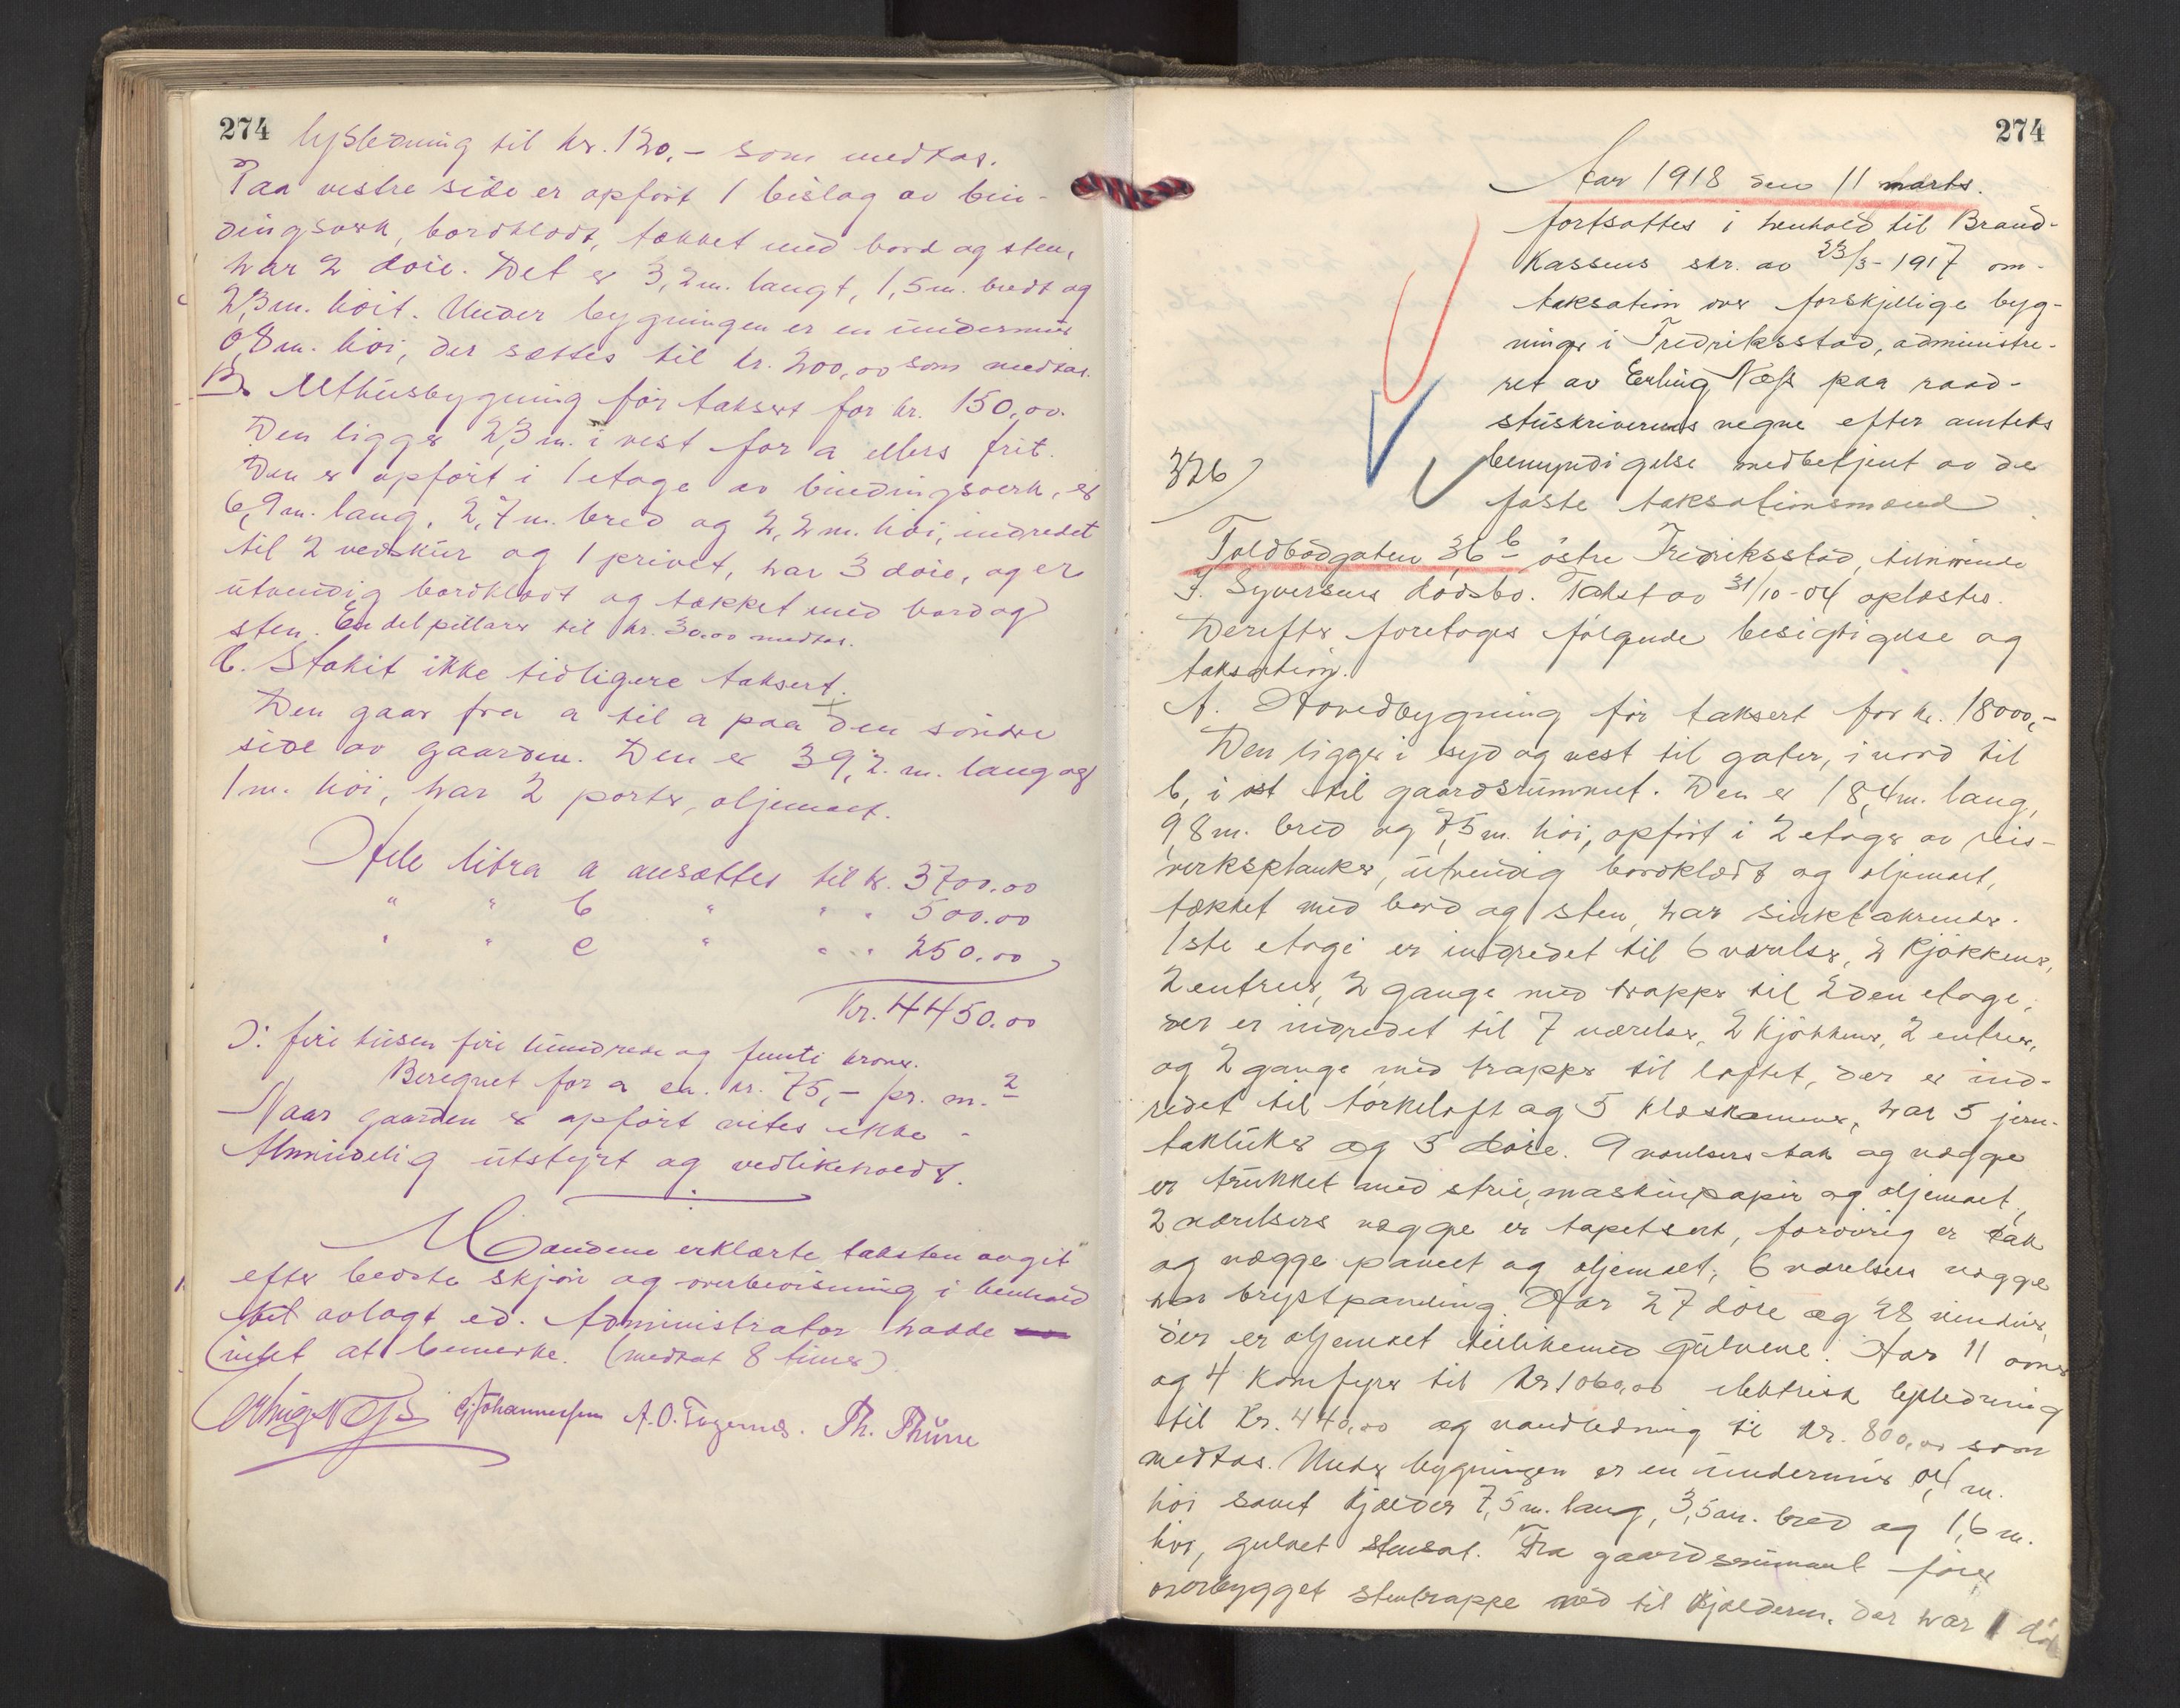 274
lysledning til kr. 120.- som medtas.
Paa vestre side er opført 1 bislag av bin-
dingsverk, bordklædt, tækket med bord og sten,
har 2 døre. Det er 3,2 m. langt, 1,5 m. bredt og
2,3 m. høit. Under bygningen er en undermur
0,8 m. høi, der sættes til kr. 200,00 som medtas.
B. Uthusbygning før taksert for kr. 150,00.
Den ligger 2,3 m. i vest for a ellers frit.
Den er opført i 1 etage av bindingsverk, er
6,9 m. lang, 2,7 m. bred og 2,2 m. høi, indredet
til 2 vedskur og 1 privet, har 3 døre, og er
utvendig bordklædt og tækket med bord og
sten. En del pillarer til kr. 30.00 medtas.
C. Stakit ikke tidligere taksert.
Den gaar fra a til a paa den søndre
side av gaarden. Den er 39,2 m. lang og
1 m. høi, har 2 porter, oljemalt.
Hele litra a ansættes til kr. 3700.00
" " b " " " 500.00
" " c " " " 250.00
Kr. 4450.00
ɔ: fire tusen fire hundrede og femti kroner.
Beregnet for a ca. kr. 75,- pr. m.2
Naar gaarden er opført vites ikke.
Almindelig utstyrt og vedlikeholdt.
Mændene erklærte taksten avgit
efter bedste skjøn og overbevisning i henhold
til avlagt ed. Administrator hadde
intet at bemerke. (medtat 8 timer)
Erling Næss Johannessen A. O. Th. Thune
274
Aar 1918 den 11 marts.
fortsattes i henhold til Brand-
kassens skr. av 23/3-1917 om-
taksation over forskjellige byg-
ninger i Fredriksstad, administre-
ret av Erling Næss paa raad-
stuskriverens vegne efter amtets
326) bemyndigelse medbetjent av de
faste taksationsmænd
Toldbodgaten 36 b østre Fredriksstad, tilhørende
J. Syversens dødsbo. Takst av 31/10-04 oplæstes.
Derefter foretoges følgende besigtigelse og
taksation.
A. Hovedbygning før taksert for kr. 18000,-
Den ligger i syd og vest til gater, i nord til
b, i øst til gaardsrummet. Den er 18,4 m. lang,
9,8 m. bred og 7,5 m. høi, opført i 2 etager av reis-
verksplanker, utvendig bordklædt og oljemalt,
tækket med bord og sten, har sinktakrender.
1ste etage er indredet til 6 værelser, 2 kjøkkener,
2 entreer, 2 gange med trapper til 2den etage,
der er indredet til 7 værelser, 2 kjøkkener, 2 entreer,
og 2 gange med trapper til loftet, der er ind-
redet til tørkeloft og 5 klæskammer, har 5 jern-
takluker og 5 døre. 9 værelsers tak og vægge
er trukket med strie, maskinpapir og oljemalt,
2 værelsers vægge er tapetsert, forøvrig er tak
og vægge panelt og oljemalt, 6 værelsers vægge
har brystpaneling. Har 27 døre og 28 vinduer,
der er oljemalt tillikemed gulvene. Har 11 ovner
og 4 komfyrer til kr 1060,00 elektrisk lysledning
til kr. 440,00 og vandledning til kr. 800,00 som
medtas. Under bygningen er en undermur 0,4 m.
høi samt kjælder 7,5 m. lang, 3,5 m. bred og 1,6 m.
høi, gulvet stensat. Fra gaardsrummet fører
overbygget stentrappe ned til kjælderen. der har 1 dør